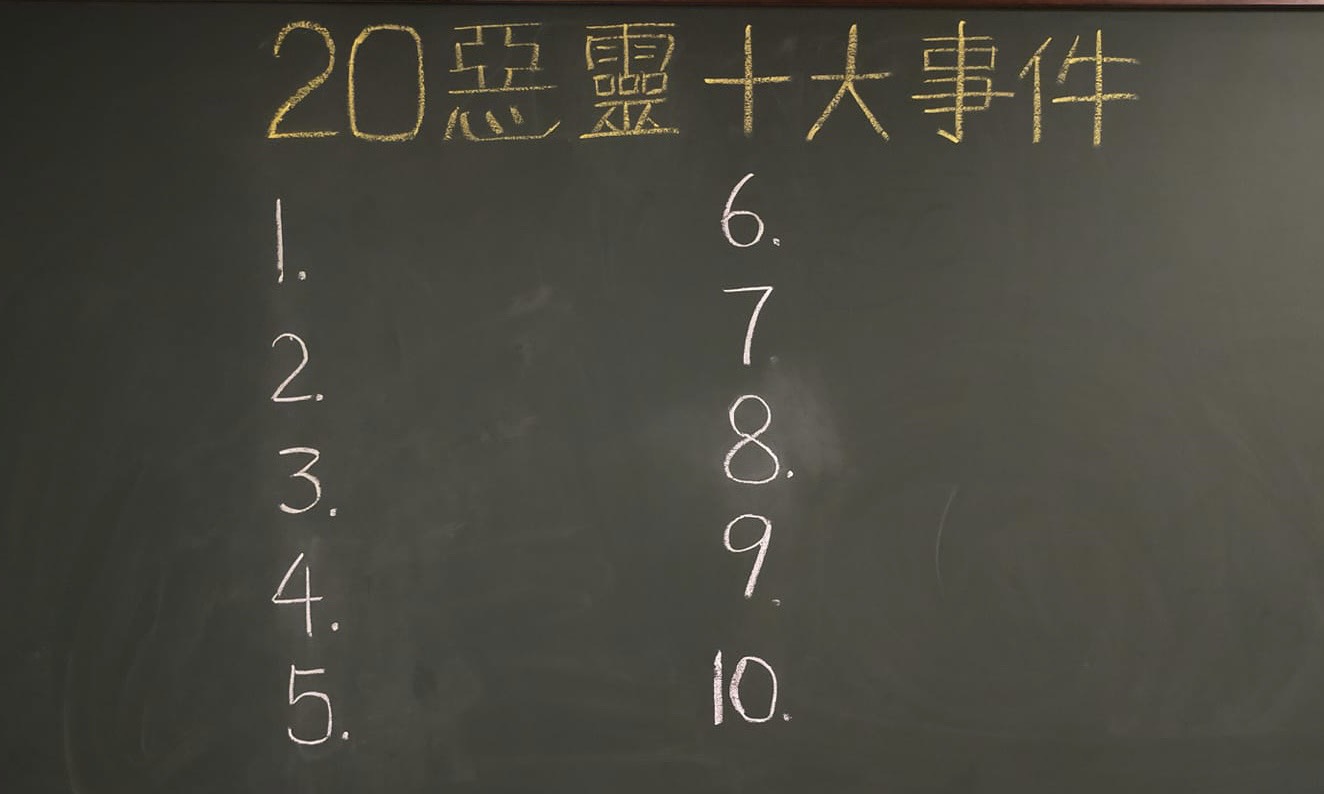 20惡靈十大事件
1.
2.
3.
4.
5.
6.
7.
8.
9.
10.